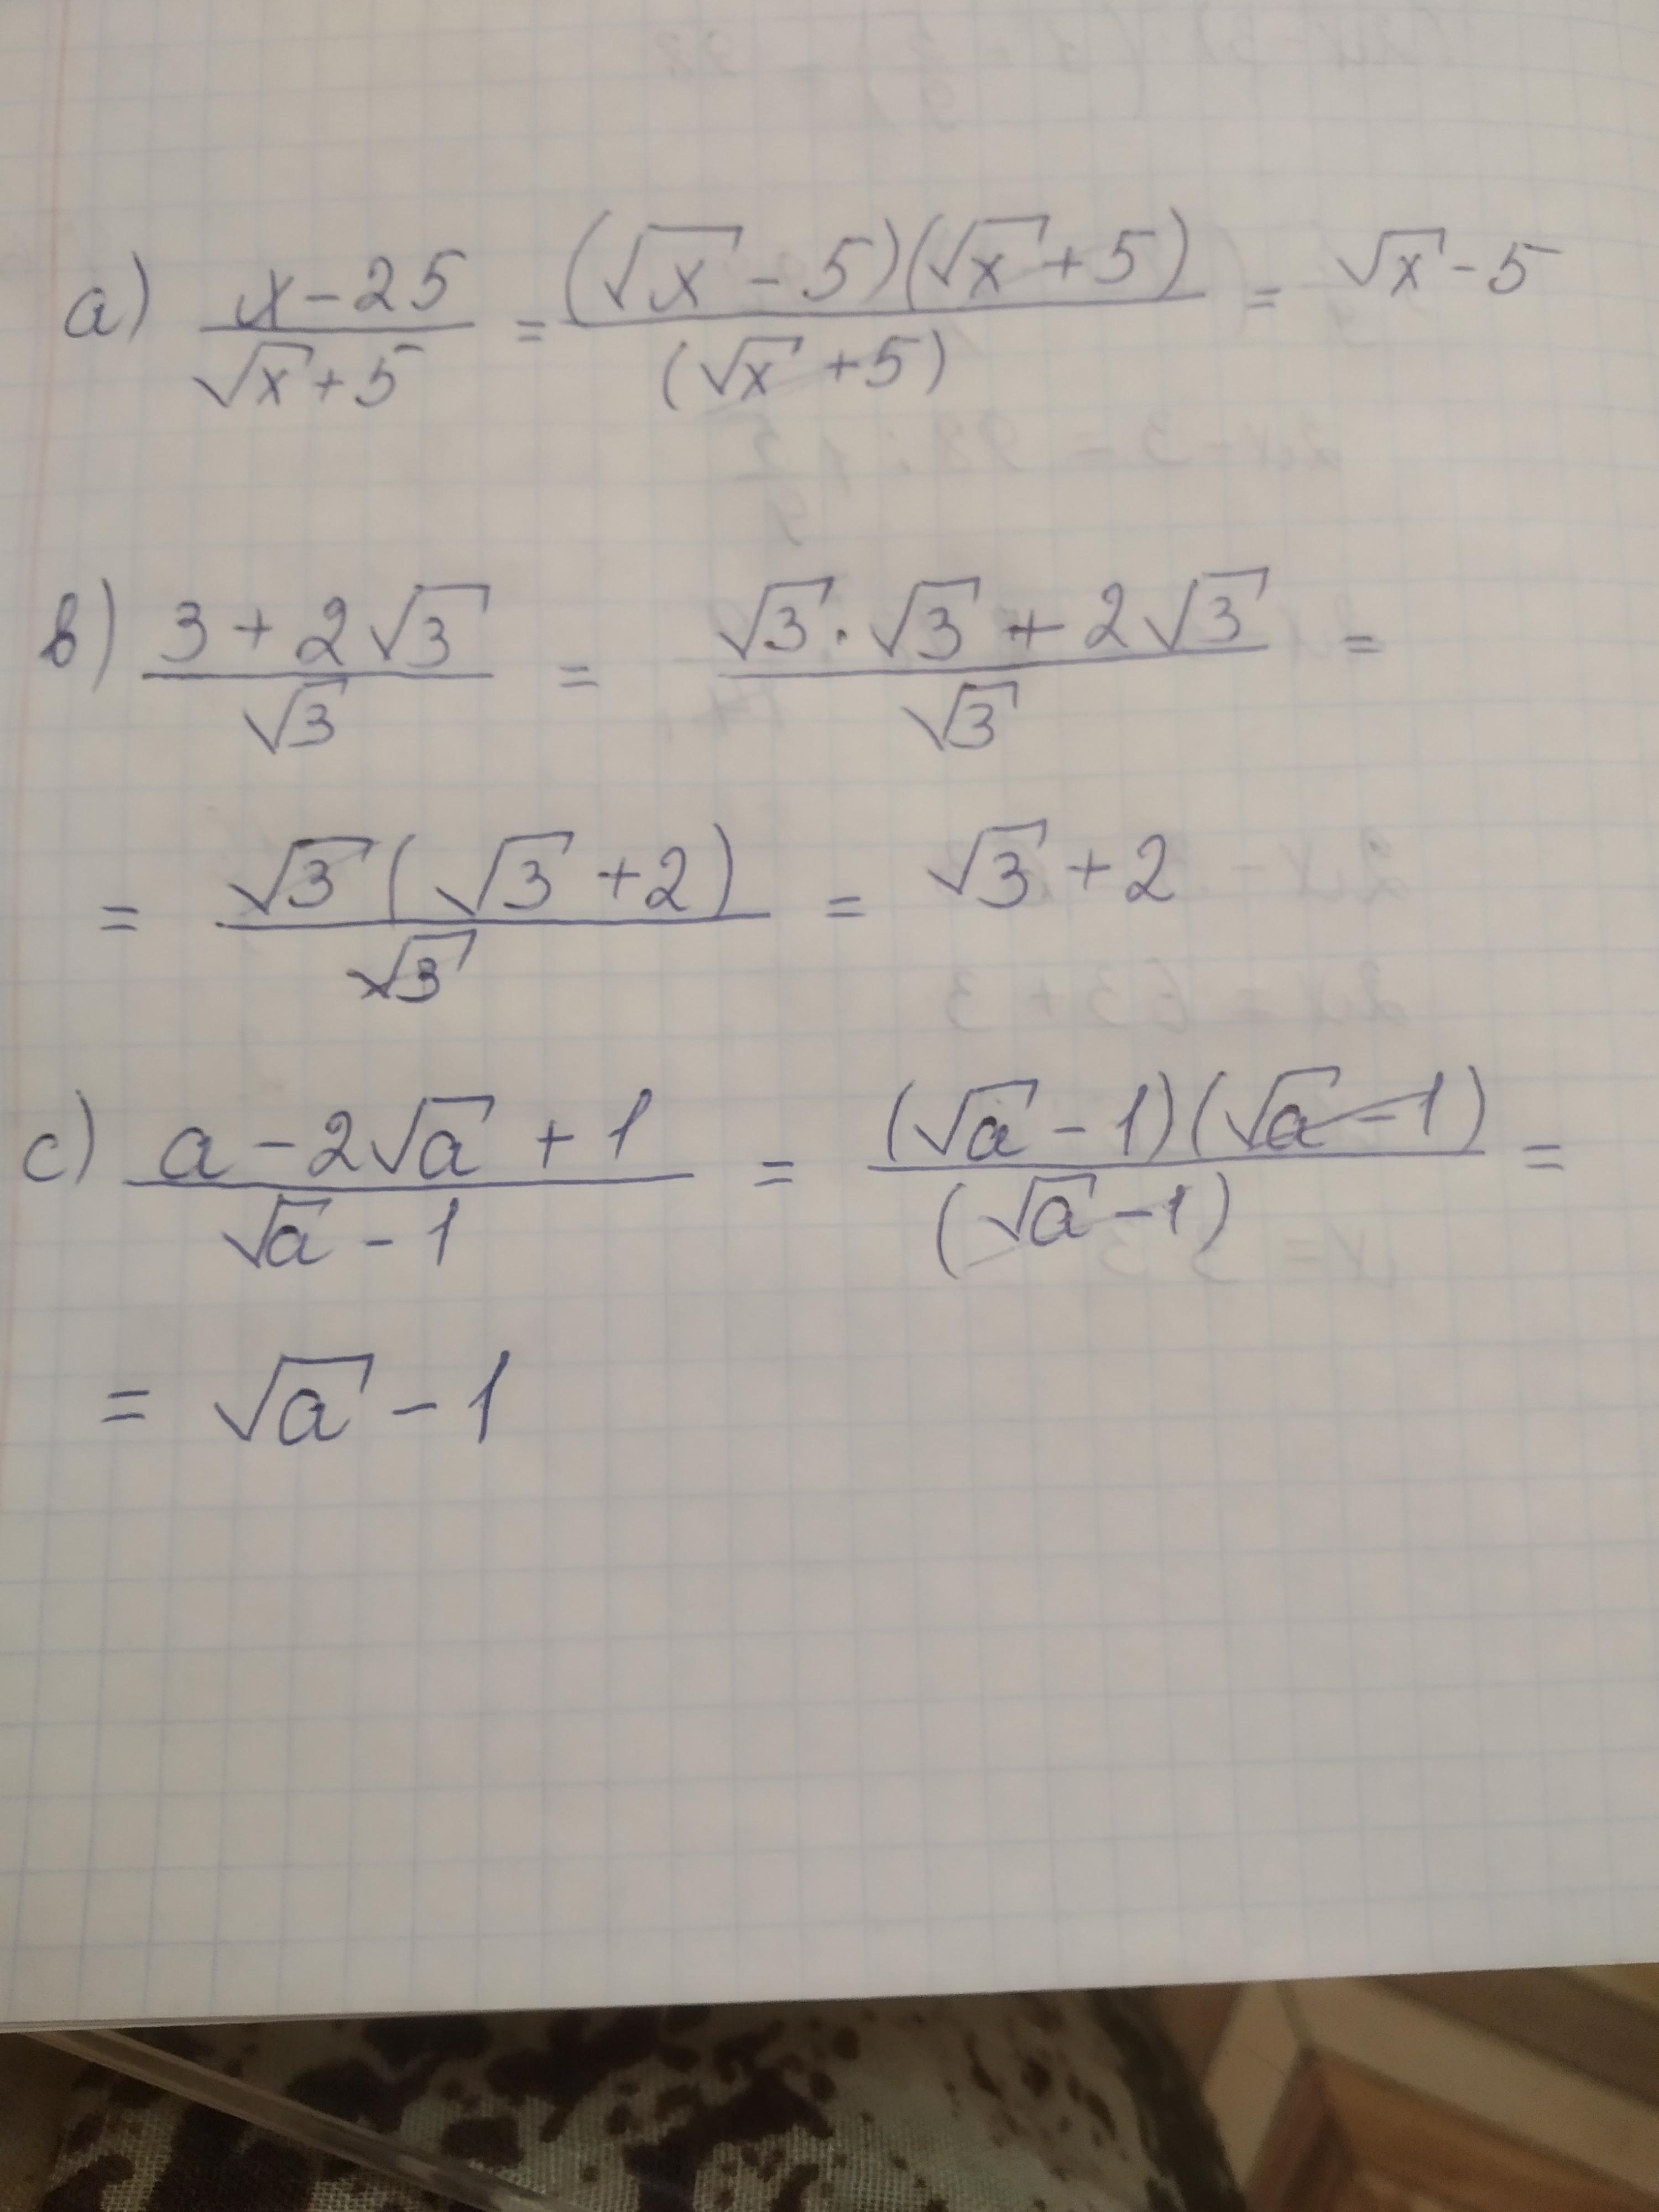 a) (x-25)/(√x+5) = ((√x-5)(√x+5))/((√x+5)) = √x-5
b) (3+2√3)/√3 = (√3·√3+2√3)/√3 =
= (√3(√3+2))/√3 = √3+2
c) (a-2√a+1)/(√a-1) = ((√a-1)(√a-1))/((√a-1)) =
= √a-1